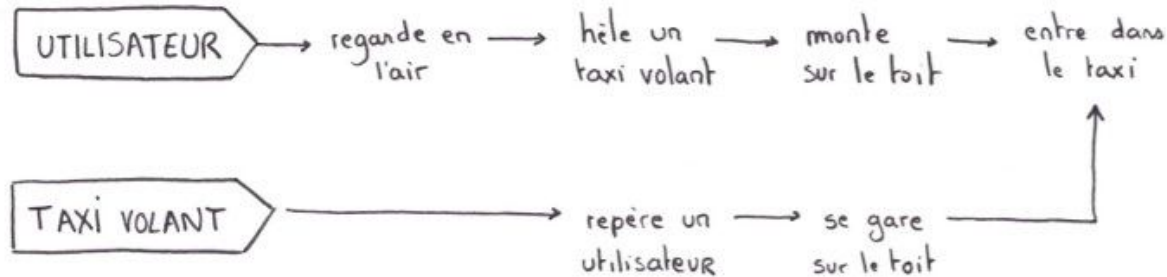 UTILISATEUR
regarde en
l'air
hèle un
taxi volant
monte
sur le toit
entre dans
le taxi
TAXI VOLANT
repère un
utilisateur
se gare
sur le toit